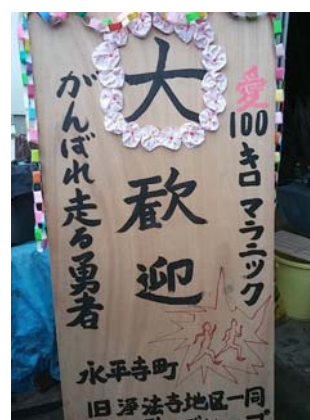 愛100キロマラニック
大歓迎
がんばれ走る勇者
永平寺町
旧浄法寺地区一同